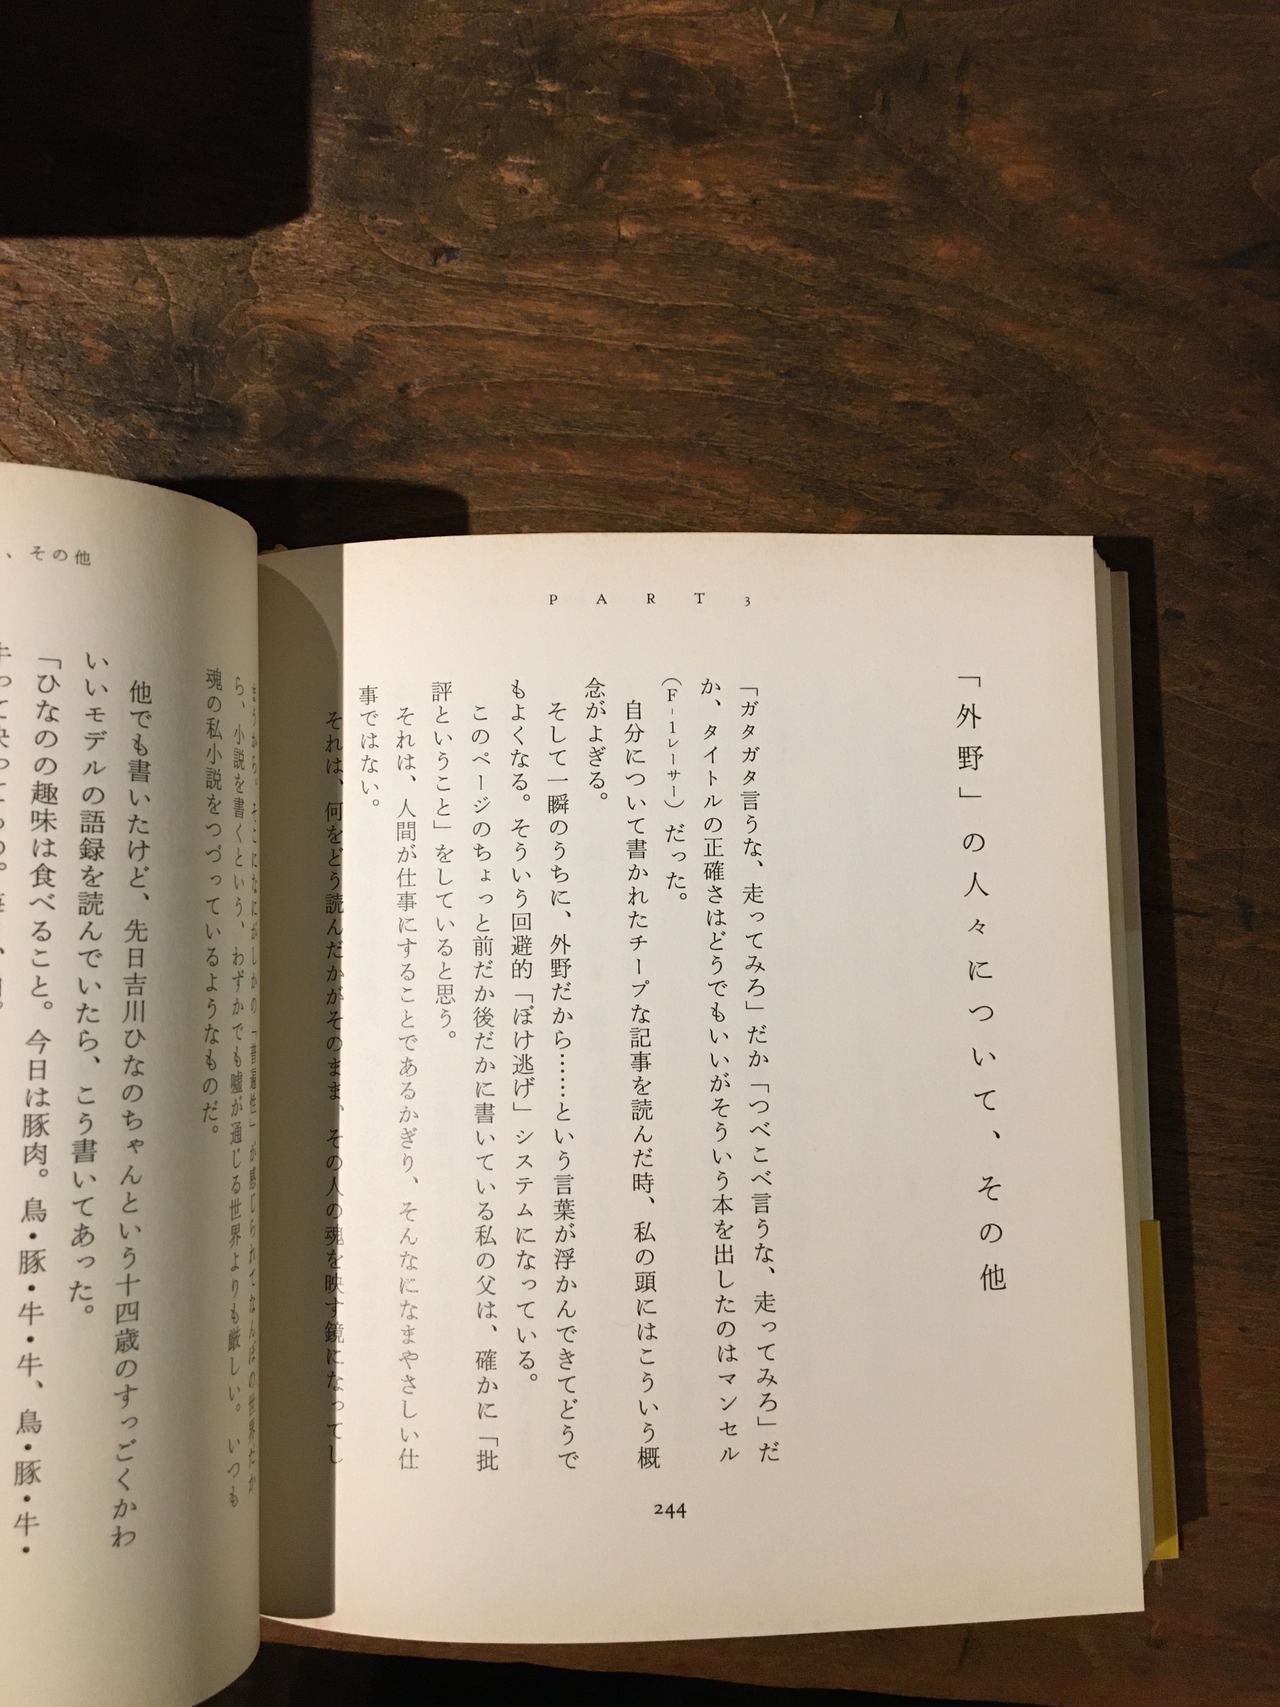 PART 3
「外野」の人々について、その他
「ガタガタ言うな、走ってみろ」だか「つべこべ言うな、走ってみろ」だ
か、タイトルの正確さはどうでもいいがそういう本を出したのはマンセル
(F-1レーサー)だった。
自分について書かれたチープな記事を読んだ時、私の頭にはこういう概
念がよぎる。
そして一瞬のうちに、外野だから……という言葉が浮かんできてどうで
もよくなる。そういう回避的「ぼけ逃げ」システムになっている。
このページのちょっと前だか後だかに書いている私の父は、確かに「批
評ということ」をしていると思う。
それは、人間が仕事にすることであるかぎり、そんなになまやさしい仕
事ではない。
それは、何をどう読んだかがそのまま、その人の魂を映す鏡になってし
244
、その他
まうから。そこになにがしかの「普遍性」が感じられてなんぼの世界だか
ら、小説を書くという、わずかでも嘘が通じる世界よりも厳しい。いつも
魂の私小説をつづっているようなものだ。
他でも書いたけど、先日吉川ひなのちゃんという十四歳のすっごくかわ
いいモデルの語録を読んでいたら、こう書いてあった。
「ひなのの趣味は食べること。今日は豚肉。鳥・豚・牛・牛、鳥・豚・牛・